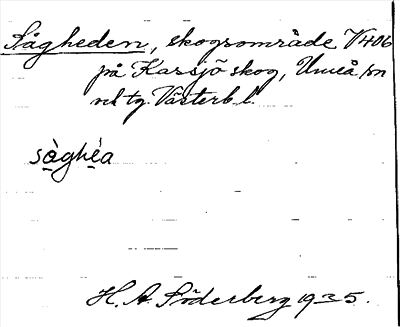 Sågheden, skogsområde V406
på Kassjö skog, Umeå sn
och tg. Västerb. l.
sàghéa
H. A. Söderberg 1935.